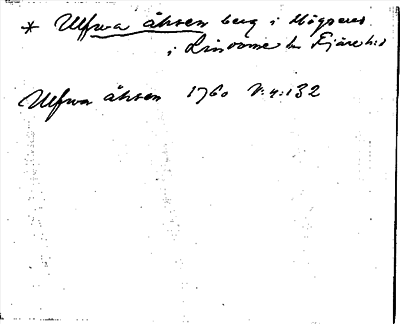 * Ulfwa åhsen berg i Högseröd
i Lindome sn Fjäre hd
Ulfwa åhsen 1760 V:4:132